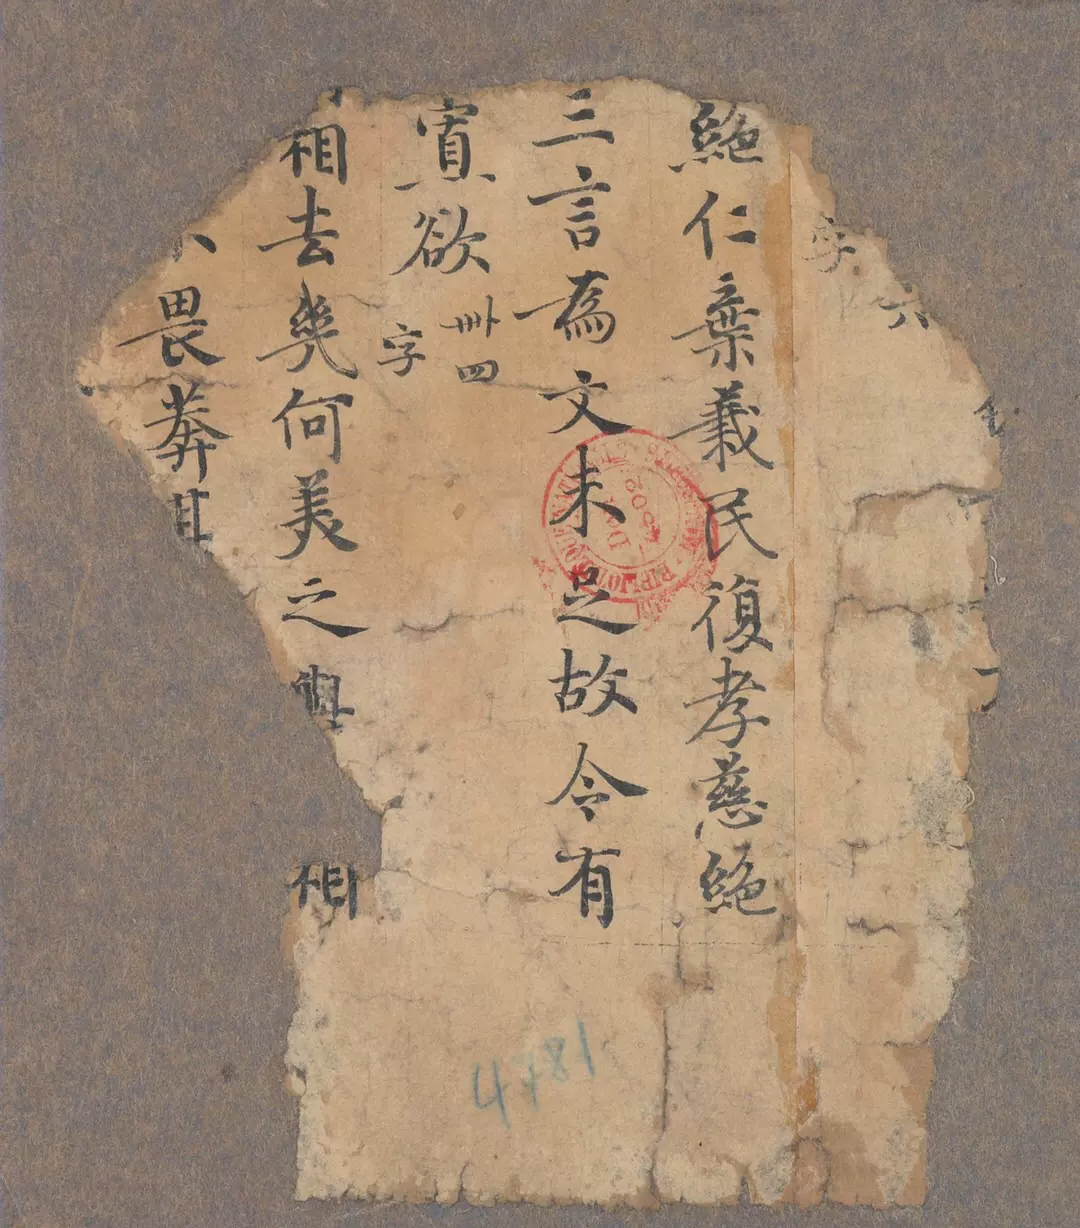 六
字
絶仁棄義民復孝慈絶
三言為文未足故令有
寡欲 卌四字
相去幾何美之與 相
畏莽其
4781